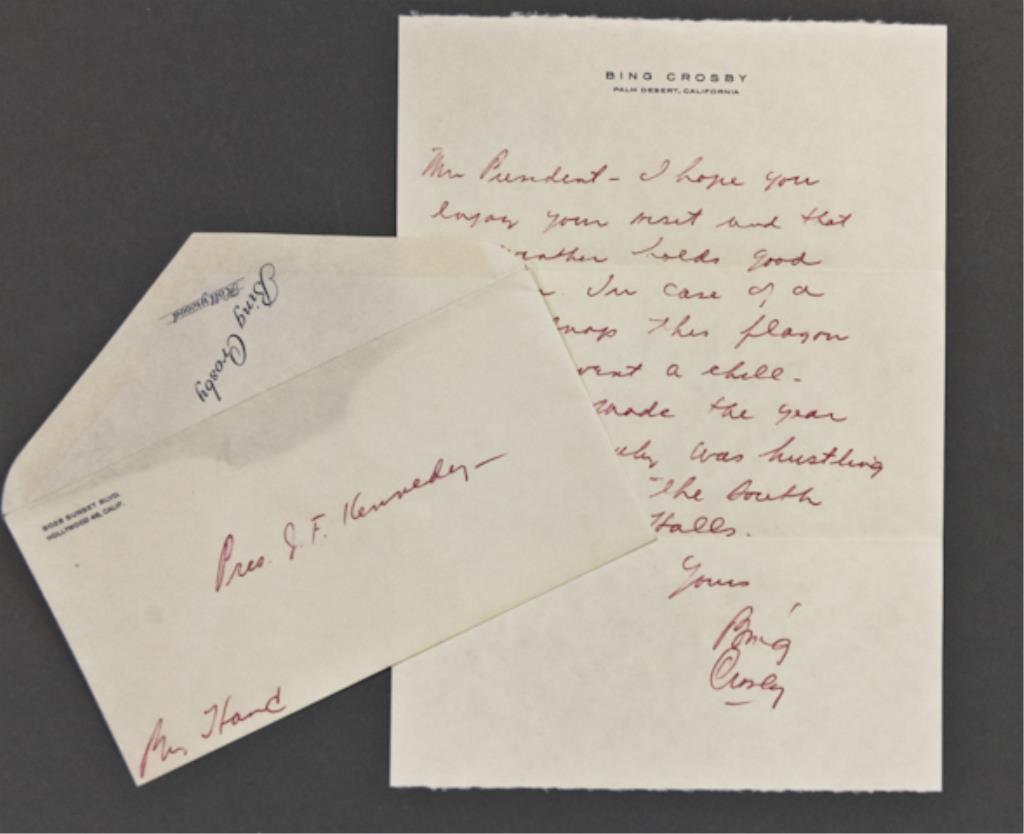 BING CROSBY
PALM DESERT, CALIFORNIA
Mr President - I hope you
enjoy your visit and that
weather holds good
In case of a
snap this flagon
a chill.
made the year
was hustling
the South
Halls.
Yours
Bing
Crosby
Bing Crosby
Hollywood
9028 SUNSET BLVD.
HOLLYWOOD 46, CALIF.
Pres. J. F. Kennedy -
By Hand